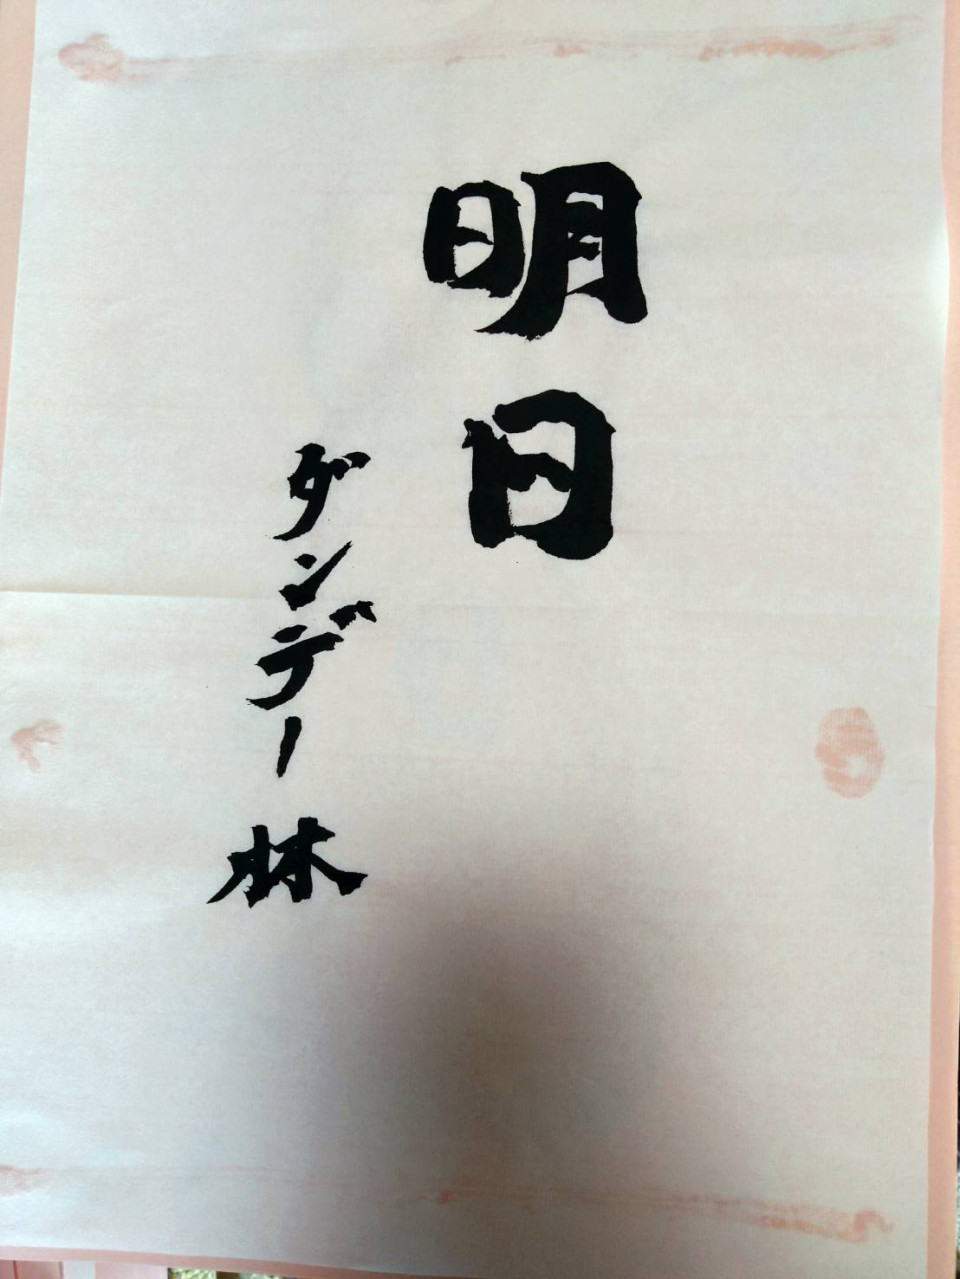 明日
ダンデー林